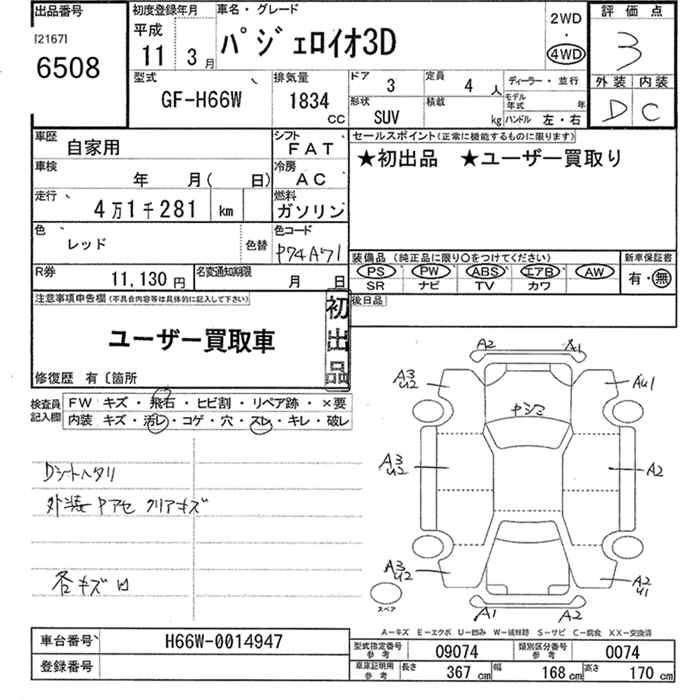 出品番号
[2167]
6508
初度登録年月
平成
11 3月
車名・グレード
パジェロイオ3D
2WD
・
4WD
評価点
3
外装 内装
D C
型式
GF-H66W
排気量
1834
CC
ドア 3
定員 4人
ディーラー・並行
形状
SUV
積載
kg
モデル年式 年
ハンドル 左・右
車歴
自家用
シフト
FAT
セールスポイント(正常に機能するものに限ります)
★初出品 ★ユーザー買取り
車検
年 月( 日)
冷房
AC
走行
4万1千281 km
燃料
ガソリン
色
レッド
色替
色コード
装備品 (純正品に限り○をつけてください)
新車保証書
PS PW ABS エアB AW
SR ナビ TV カワ
有・無
R券
11,130円
名変通知期限
月 日
後日品
注意事項申告欄(不具合内容等は具体的に記入して下さい)
初出品
ユーザー買取車
修復歴 有〔箇所
検査員記入欄
FW キズ・飛石・ヒビ割・リペア跡・×要
内装 キズ・汚レ・コゲ・穴・スレ・キレ・破レ
Dシートヘタリ
外装 クリアキズ
各キズ凹
A2 A1
A3
U2
AU1
A3
U2
A2
A3
U2
A2
U1
A1 A2
スペア
A-キズ E-エクボ U-凹み W-補修跡 S-サビ C-腐食 XX-交換済
車台番号
H66W-0014947
登録番号
型式指定番号
参考
09074
類別区分番号
参考
0074
車庫証明用
参考
長さ 367 cm
幅 168 cm
高さ 170 cm